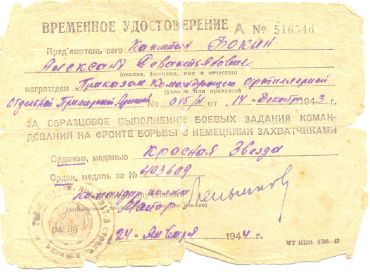 ВРЕМЕННОЕ УДОСТОВЕРЕНИЕ А № 516346
Пред'явитель сего Капитан Фокин
Александр Севастьянович
(звание, фамилия, имя и отчество)
награжден Приказом Командующего Артиллерией
Отдельной Приморской Армии 015/н от 14 декабря 1943 г.
ЗА ОБРАЗЦОВОЕ ВЫПОЛНЕНИЕ БОЕВЫХ ЗАДАНИЙ КОМАН-
ДОВАНИЯ НА ФРОНТЕ БОРЬБЫ С НЕМЕЦКИМИ ЗАХВАТЧИКАМИ
Орденом, медалью Красная Звезда
Орден, медаль за № 403609
Командир полка
Майор
24 января 1944 г.